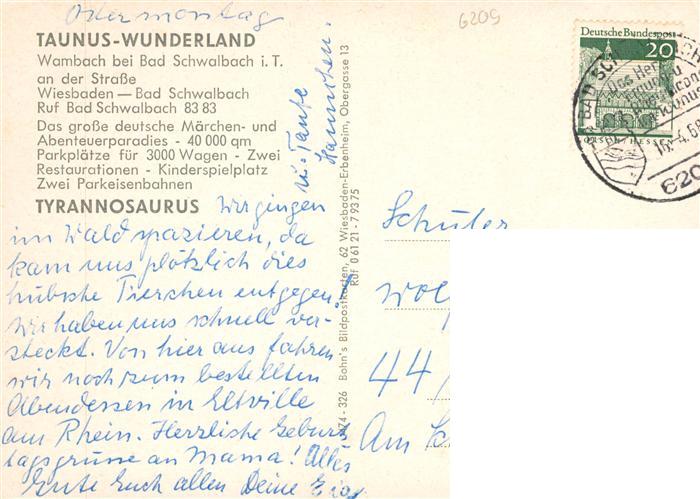 Ostermontag
6209
TAUNUS-WUNDERLAND
Wambach bei Bad Schwalbach i. T.
an der Straße
Wiesbaden — Bad Schwalbach
Ruf Bad Schwalbach 83 83
Das große deutsche Märchen- und
Abenteuerparadies - 40 000 qm
Parkplätze für 3000 Wagen - Zwei
Restaurationen - Kinderspielplatz
Zwei Parkeisenbahnen
TYRANNOSAURUS Wir gingen
im Wald spazieren, da
kam uns plötzlich dies
hübsche Tierchen entgegen.
Wir haben uns schnell ver-
steckt. Von hier aus fahren
wir noch zum bestellten
Abendessen in Eltville
am Rhein. Herzliche Geburts
tagsgrüsse an Mama! Alles
Gute Euch allen Deine
u. Tante
Hannchen.
A74 - 326 Bohn's Bildpostkarten, 62 Wiesbaden-Erbenheim, Obergasse 13
Ruf 0 61 21 - 7 93 75
Deutsche Bundespost
20
LORSCH / HESSEN
BAD SCH
Das Herz
620
Schüler
Wol
44/
Am